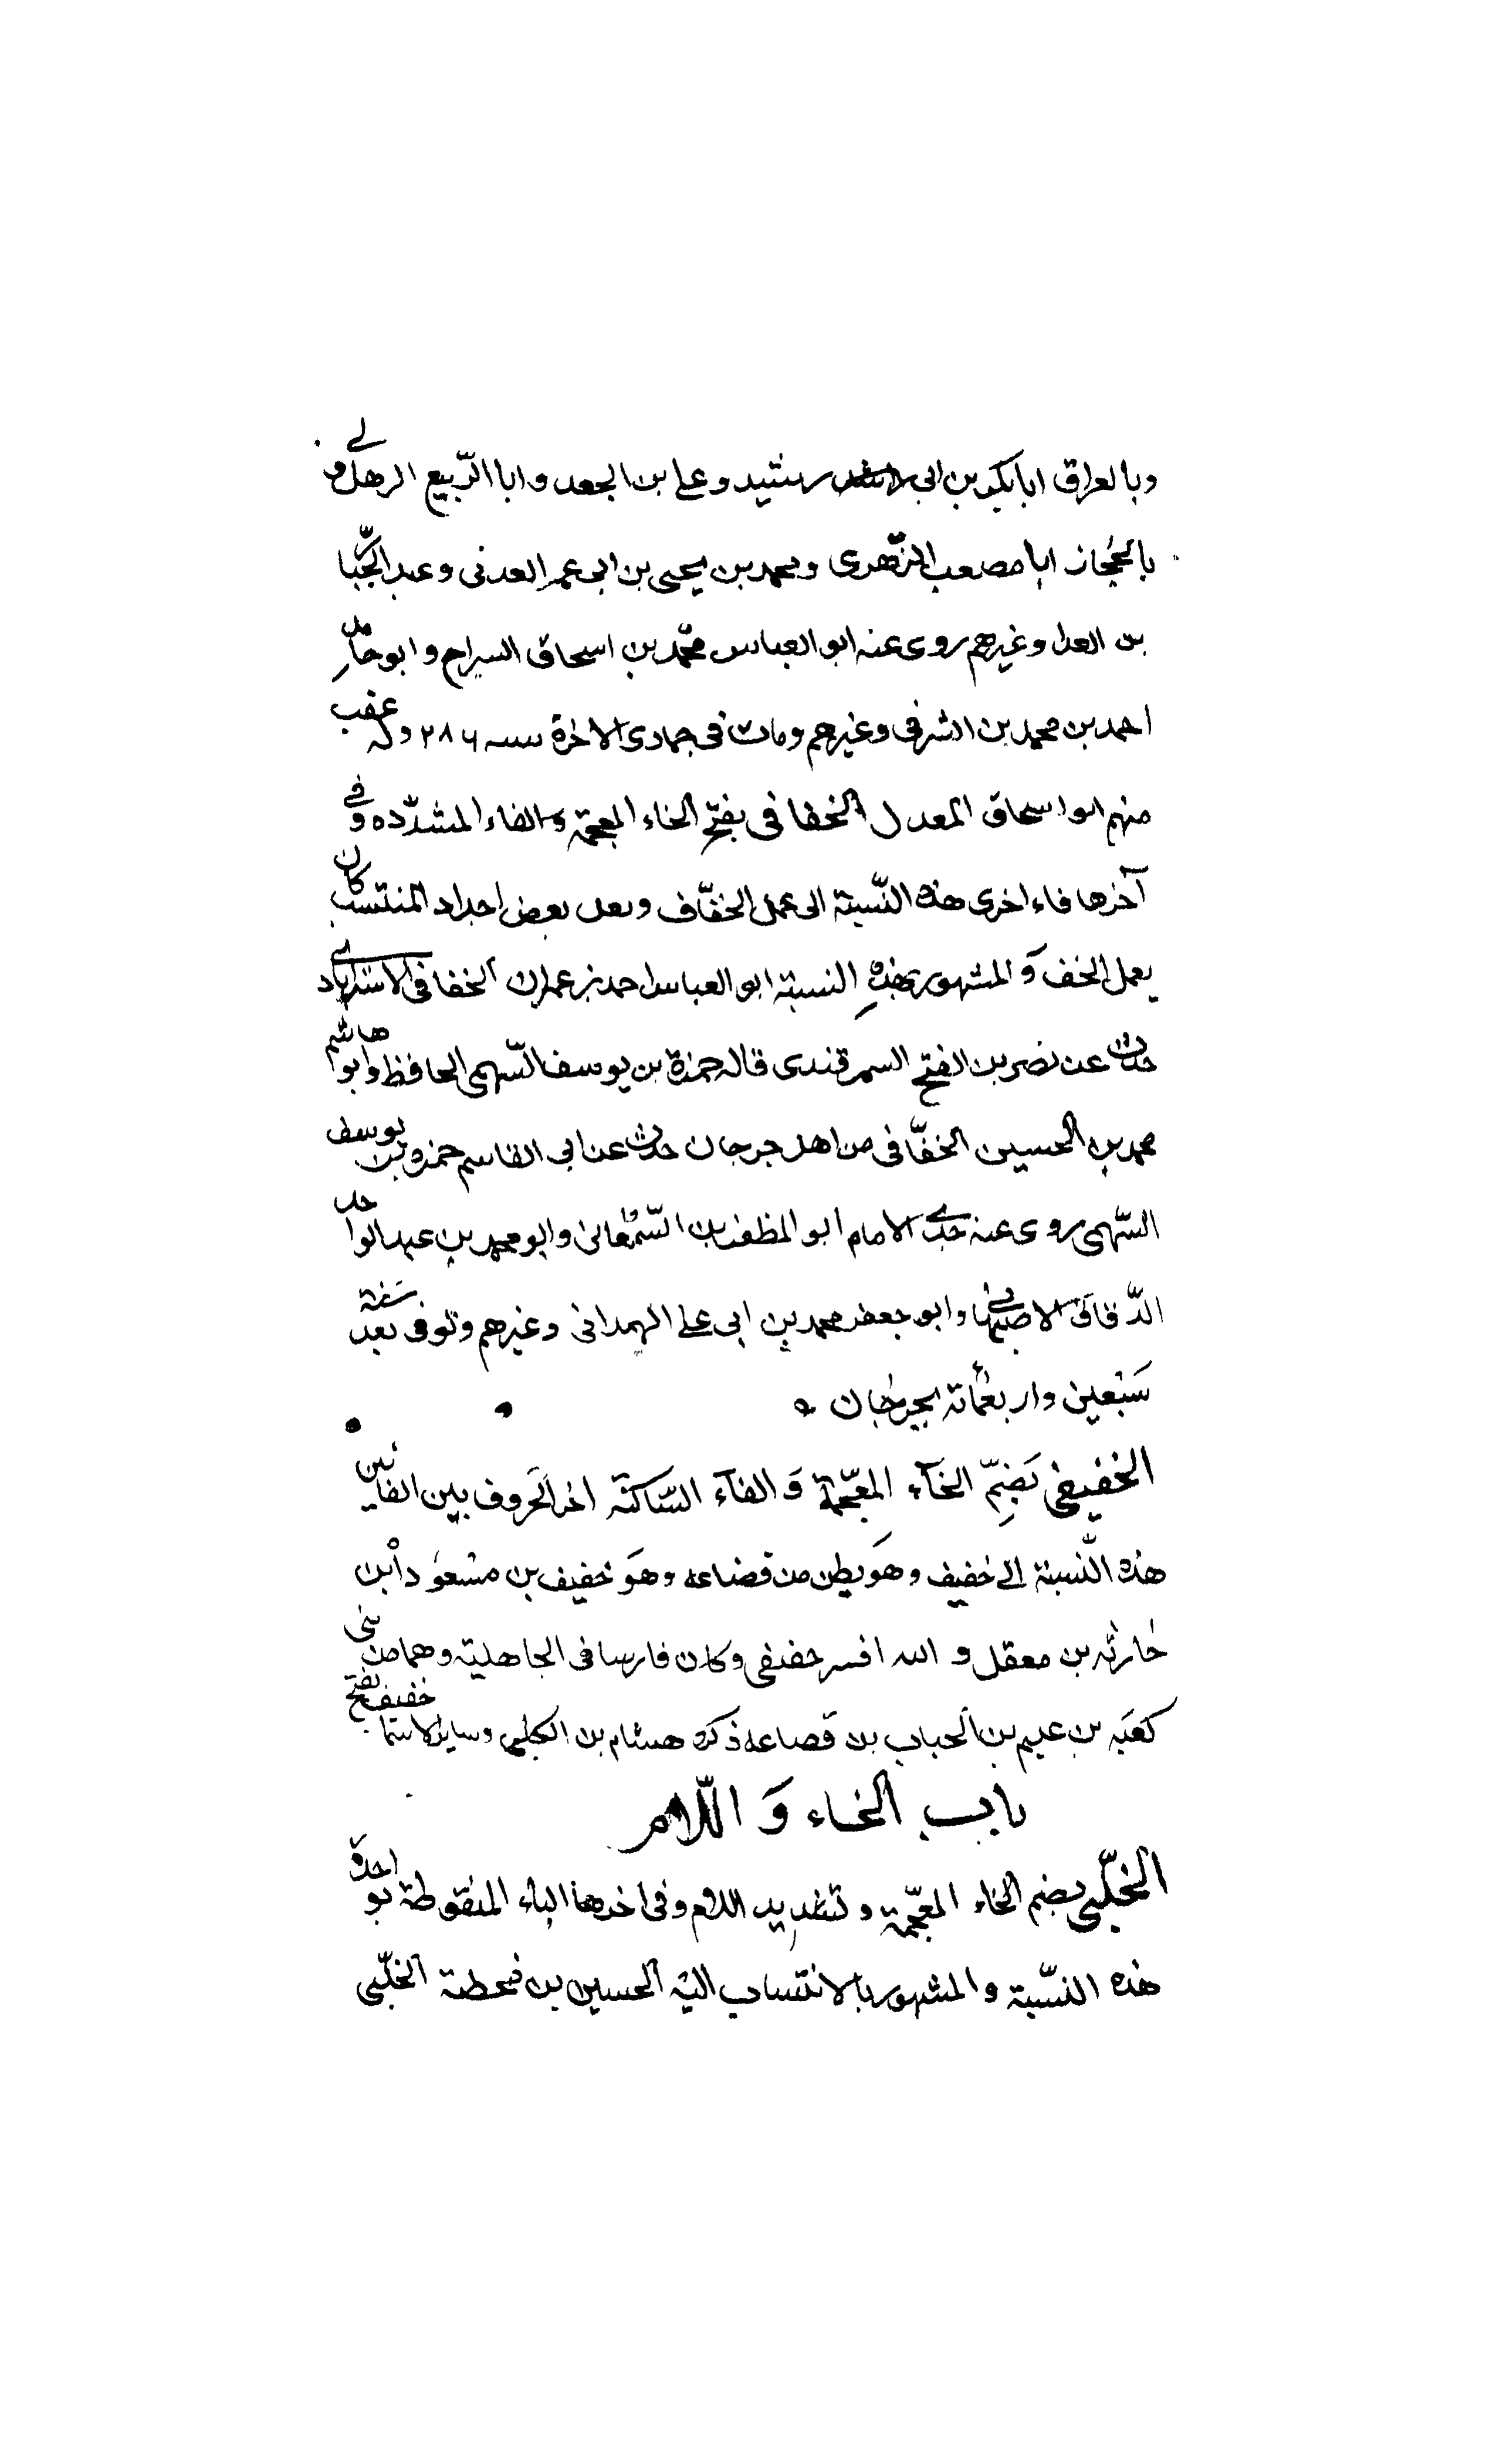 وبالعراق ابا بكر بن ابى رشيد وعلي بن الجعد وابا الرّبيع الزهلى و
بالحجاز ابا مصعب الزّهرى ومحمد بن يحيى بن ابى عمر العدنى وعبد الجبّار
بن العلا وغيرهم روى عنه ابو العباس محمّد بن اسحاق السراج وابو حامد
احمد بن محمد بن الشرفى وغيرهم ومات فى جمادى الاخرة سنه ٢٨٦ وله عقب
منهم ابو اسحاق المعدل الخفافى بفتح الخاء المعجمة والفاء المشدّده وفي
آخرها فاء اخرى هذه النّسبة الى عمل الخفّاف ولعل بعض اجداد المنتسب كان
يعمل الخف وَ المشهور بهذه النسبة ابو العباس احمد بن عمران الخفافى الاستراباذي
حدث عن نصر بن الفتح السمرقندى قاله حمزة بن يوسف السّهمى الحافظ وابو هاشم
محمد بن الحسين الخفّافى من اهل جرجان حدث عن ابى القاسم حمزه بن يوسف
السّهمى روى عنه جدي الامام ابو المظفر بن السّمعانى وابو محمد بن عبد الواحد
الدّقاق الاصبهانى وابو جعفر محمد بن ابى على الهمدانى وغيرهم وتوفى بعد سَنة
سَبعين واربعمائة بجرجان ه
الخفيفى بَضِمّ الخآء المعّجمة وَ الفآء السّاكنة اخر الحَروف بين الفائين
هذه النّسبة الى خفيف وهَو بطن من قضاعه وهَو خفيف بن مسَعود ابْن
حارثه بن معقل و الله افسر خفيفى وكان فارسا فى الجاهلية وهما من بنى
كعَبه بن عليم بن الحباب بن قصاعه ذكره هشام بن الكلبى وساير الاسما خفيف بفتح
باب الخاء وَ اللّام
الخلّبى بضم الخاء المعّجمة وتشديد اللام وفى اخرها الباء المنقوطة بواحدة
هذه النسّبة والمشهور بالانتساب اليه الحسين بن قحطبة الخلّبى